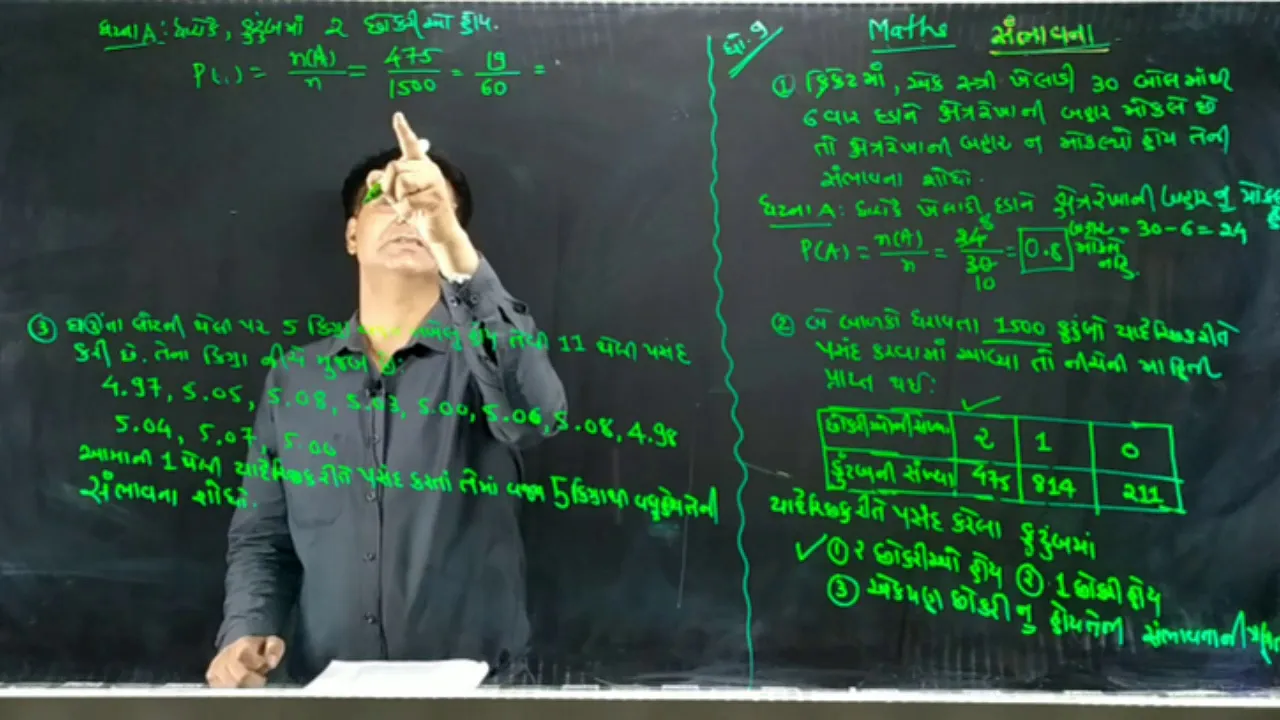 ઘટના A: ધારોકે, કુટુંબમાં ૨ છોકરીઓ હોય.
P(1) = n(A)/n = 475/1500 = 19/60 =
③ ઘઉંના લોટની થેલી પર 5 કિગ્રા હોય તેવી 11 થેલી પસંદ
કરી છે. તેના કિગ્રા નીચે મુજબ છે:
4.97, 5.05, 5.08, 5.03, 5.00, 5.06, 5.08, 4.98
5.04, 5.07, 5.00
આમાની 1 થેલી યાદૈચ્છિક રીતે પસંદ કરતાં તેમાં વજન 5 કિગ્રાથી વધુ હોય તેની
સંભાવના શોધો.
ધો. 9
Maths સંભાવના
① ક્રિકેટમાં, એક સ્ત્રી ખેલાડી 30 બોલમાંથી
6 વાર દડાને ક્ષેત્રરેખાની બહાર મોકલે છે
તો ક્ષેત્રરેખાની બહાર ન મોકલ્યો હોય તેની
સંભાવના શોધો.
ઘટના A: ધારોકે ખેલાડી દડાને ક્ષેત્રરેખાની બહાર ન
P(A) = n(A)/n = 24/30 = 0.8
8
10
બહાર = 30-6=24
મોકલે
નહિ.
② બે બાળકો ધરાવતા 1500 કુટુંબો યાદૈચ્છિક રીતે
પસંદ કરવામાં આવ્યા તો નીચેની માહિતી
પ્રાપ્ત થઈ:
છોકરીઓની સંખ્યા ૨ 1 0
કુટુંબની સંખ્યા 475 814 211
યાદૈચ્છિક રીતે પસંદ કરેલા કુટુંબમાં
✓① ૨ છોકરીઓ હોય ② 1 છોકરી હોય
③ એકપણ છોકરી ન હોય તેની સંભાવના